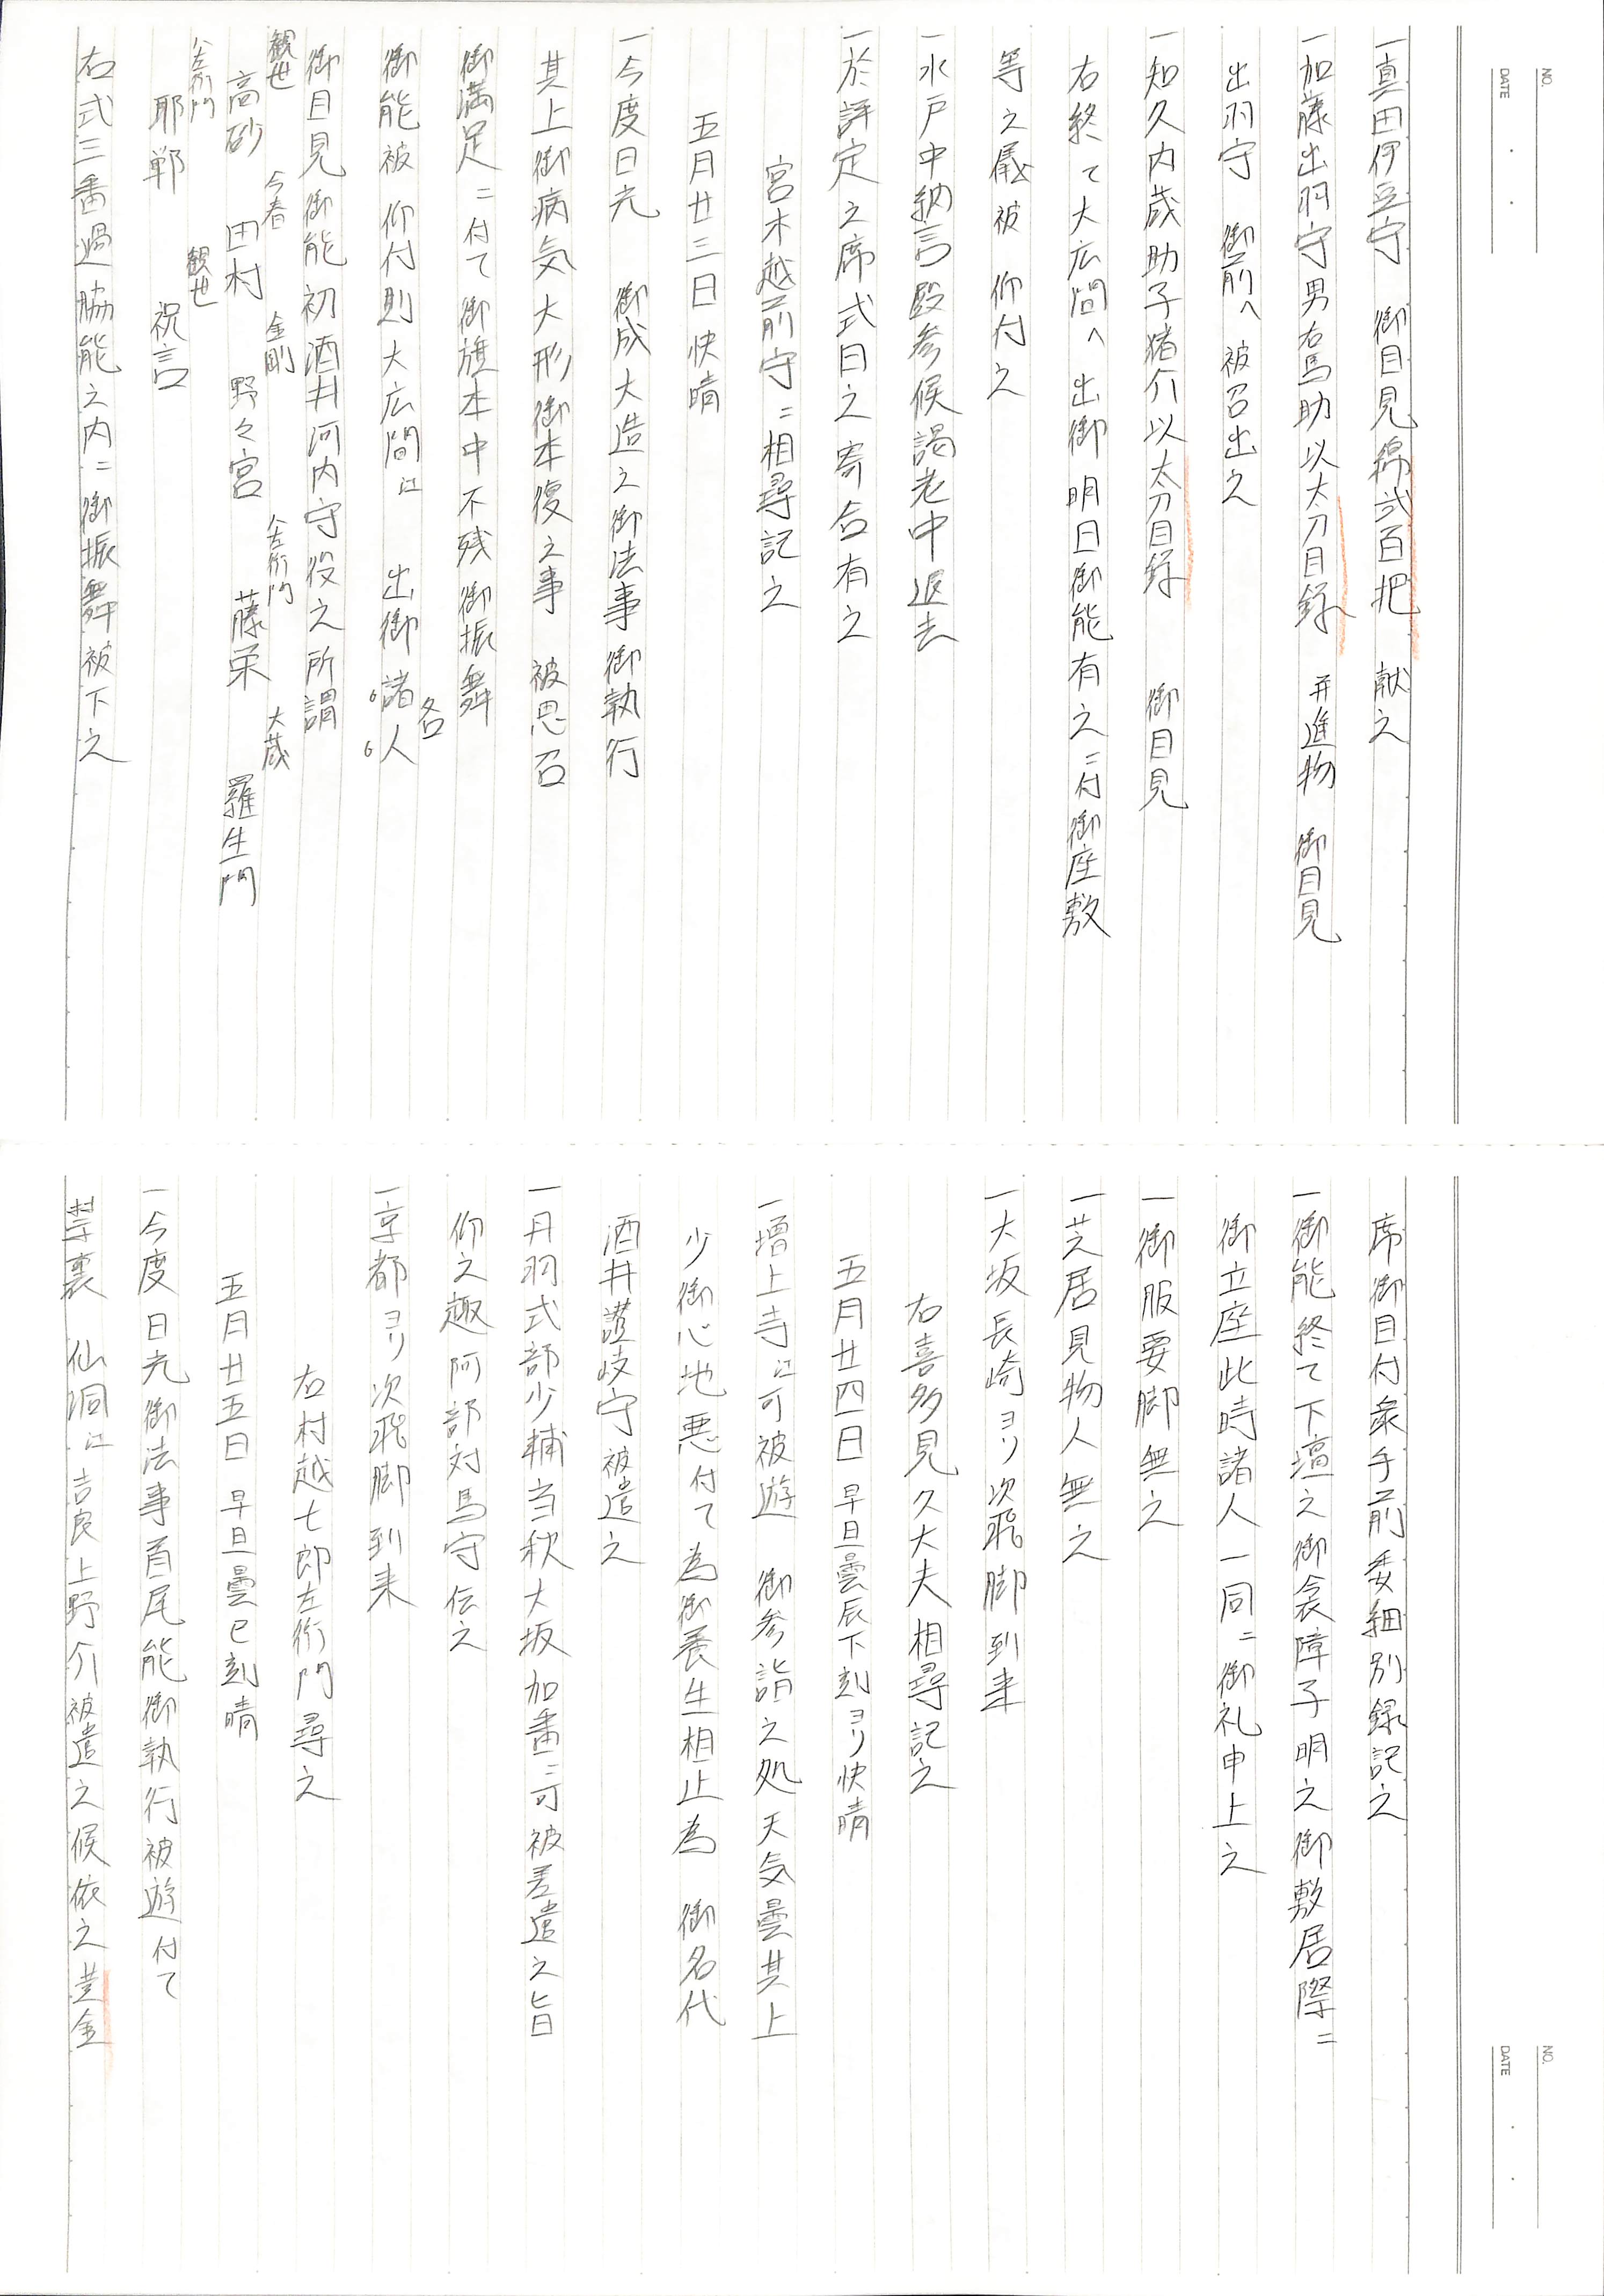 NO.
DATE
一真田伊豆守　御目見綿弐百把　献之
一加藤出羽守男右馬助以太刀目録　并進物　御目見
出羽守　御前へ被召出之
一知久内蔵助子猪介以太刀目録　御目見
右終て大広間へ出御明日御能有之ニ付御座敷
等之儀被　仰付之
一水戸中納言殿参候謁老中退去
一於評定之席式日之寄合有之
宮木越前守ニ相尋記之
五月廿三日快晴
一今度日光　御成大造之御法事御執行
其上御病気大形御本復之事　被思召
御満足ニ付て御旗本中不残御振舞
御能被　仰付則大広間江　出御諸人
各
御目見御能初酒井河内守役之所謂
観世　今春　金剛　八左衛門　大蔵
高砂　田村　野々宮　藤栄　羅生門
八左衛門　観世
耶鄲　祝言
右式三番過脇能之内ニ御振舞被下之
NO.
DATE
席御目付衆手前委細別録記之
一御能終て下壇之御衾障子明之御敷居際ニ
御立座此時諸人一同ニ御礼申上之
一御服要脚無之
一芝居見物人無之
一大坂長崎ヨリ次飛脚到来
右喜多見久大夫相尋記之
五月廿四日早旦曇辰下刻ヨリ快晴
一増上寺江可被遊　御参詣之処天気曇其上
少御心地悪付て為御養生相止為　御名代
酒井讃岐守被遣之
一丹羽式部少輔当秋大坂加番ニ可被差遣之旨
仰之趣阿部対馬守伝之
一京都ヨリ次飛脚到来
右村越七郎左衛門尋之
五月廿五日早旦曇巳刻晴
一今度日光御法事首尾能御執行被遊付て
禁裏　仙洞江吉良上野介被遣之候依之黄金